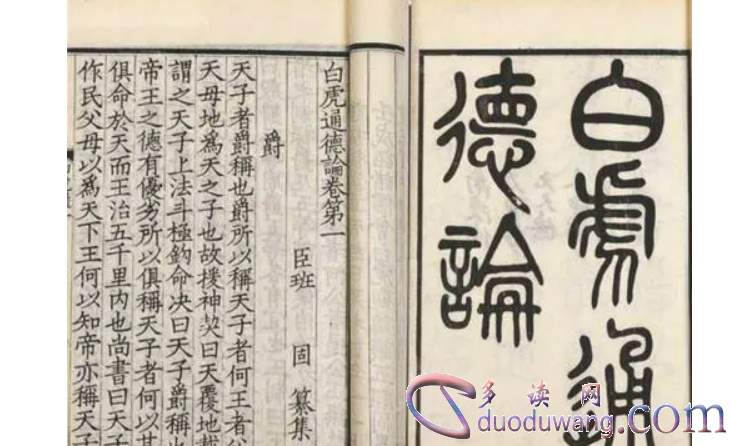 白虎通
德論
白虎通德論卷第一
臣班 固 纂集
爵
天子者爵稱也爵所以稱天子者何王者父
天母地爲天之子也故援神契曰天覆地載
謂之天子上法斗極鈎命決曰天子爵稱也
帝王之德有優劣所以俱稱天子者何以其
俱命於天而王治五千里內也尚書曰天子
作民父母以爲天下王何以知帝亦稱天子
多读网
duoduwang.com